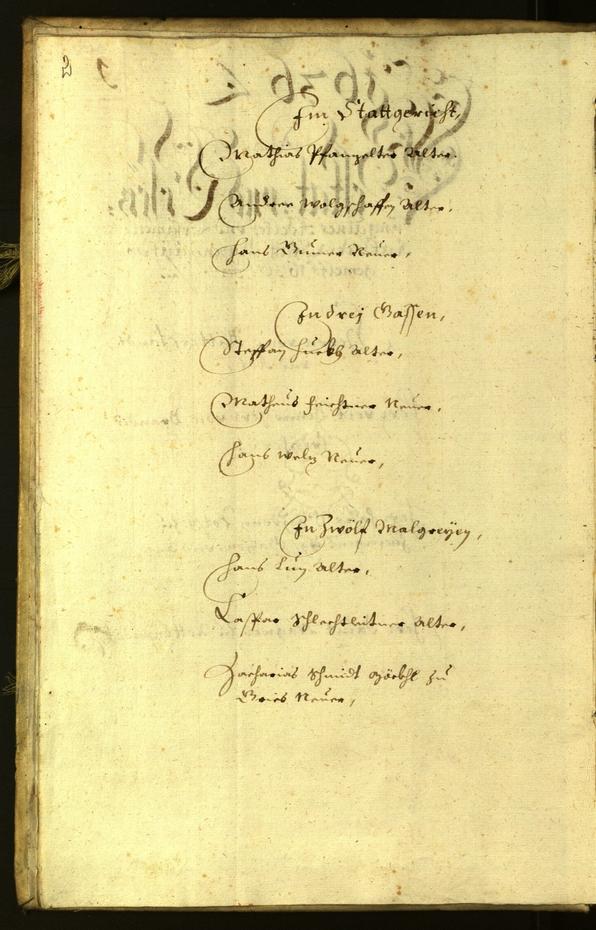 2
Im Stattgericht,
Mathias Pfanzelter Alter.
Andree Wolgschaffen Alter,
Hanns Neuer,
In drey Gassen,
Steffan Alter,
Matheus Feichtner Neuer,
Hanns Welz Neuer,
In Zwölf Malgreyen,
Hanns Lun Alter,
Caspar Schlechtleitner Alter,
Zacharias Schmidt zu
Gries Neuer,